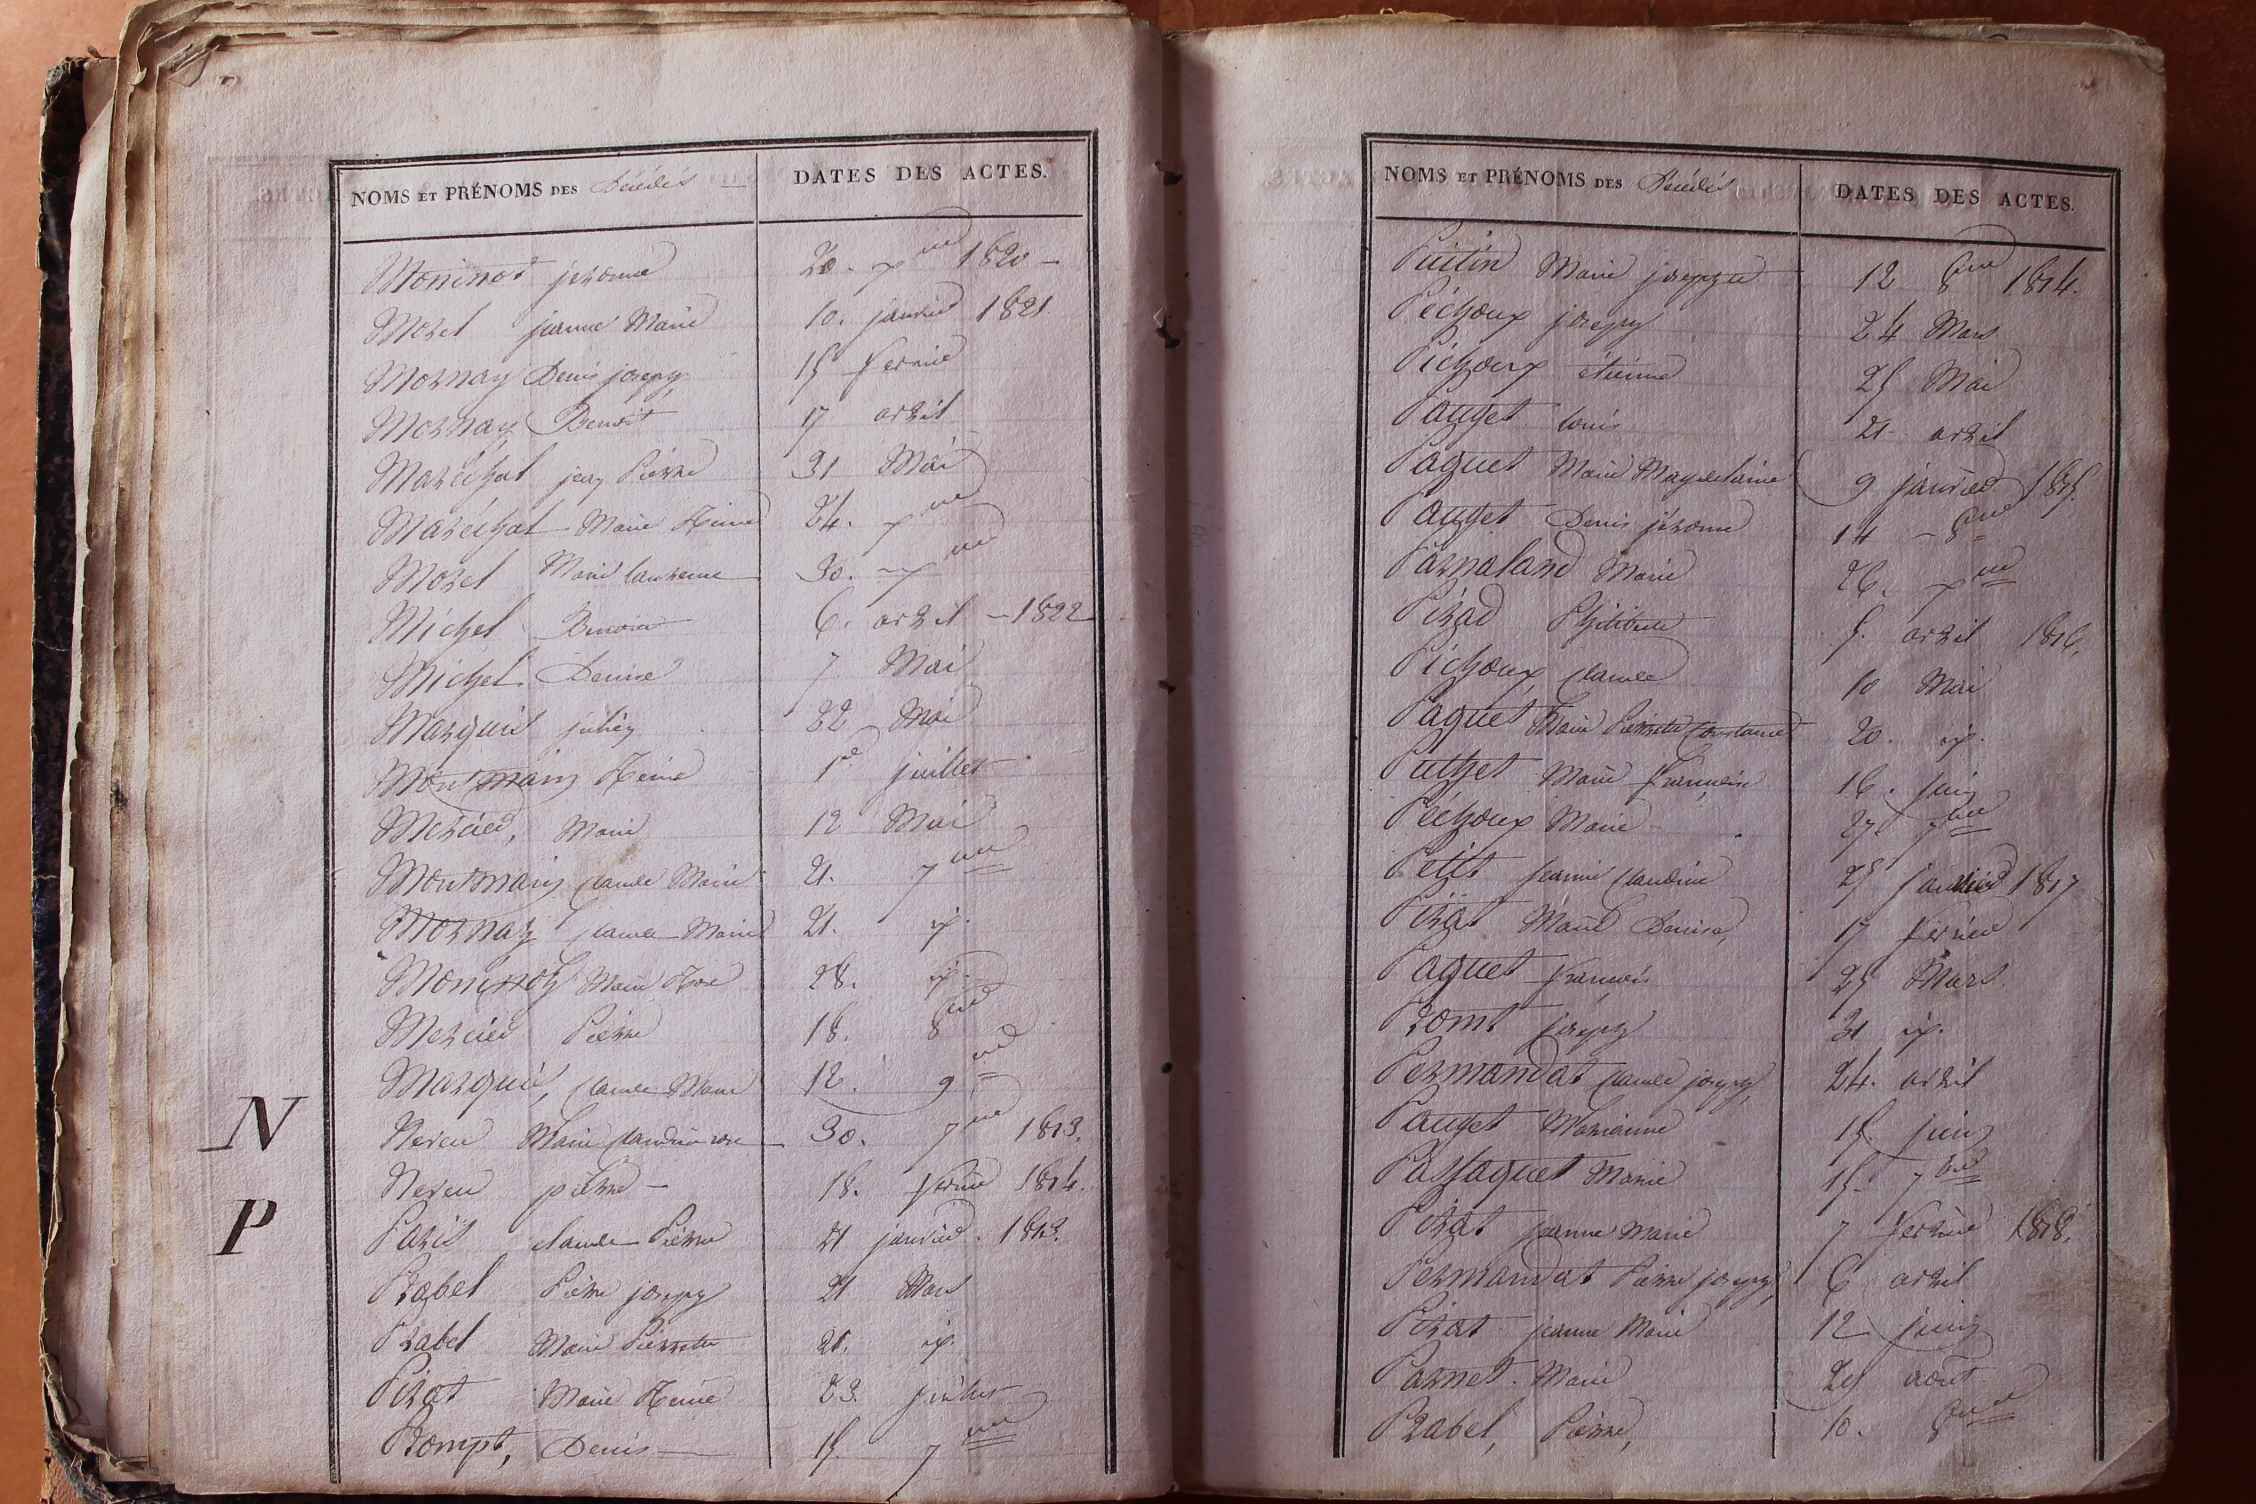 NOMS ET PRÉNOMS DES Décédés — DATES DES ACTES.
Moninot jérome 20. xbre 1820 —
Morel jeanne Marie 10. janvier 1821.
Mornay Denis joseph 15 fevrier
Mornay Benoit 17 avril
Maréchal jean Pierre 31 Mai
Maréchal Marie Reine 24. xbre
Morel Marie laurence 30. xbre
Michel Benoit 6. avril — 1822
Michel Denise 7 Mai
Marquis julien 22 Mai
Montmain Reine 1er juillet
Mercier, Marie 12 Mai
Montmain claude Marie 21. 7bre
Mornay claude Marie 21. id.
Moninot Marie Rose 28. id.
Mercier Pierre 18. 8bre
Marquis, claude Marie 12. 9bre
N
Neveu Marie claudine rose 30. 7bre 1813.
Neveu pierre — 18. fevrier 1814.
P
Paris claude Pierre 21 janvier. 1813.
Prabel Pierre joseph 21 Mars
Prabel Marie Pierrette 21. id.
Pirat Marie Reine 23. juillet
Prompt, Denis — 15. 7bre
NOMS ET PRÉNOMS DES Décédés DATES DES ACTES.
Putin Marie josephte 12 8bre 1814.
Péchoux joseph 24 Mars
Péchoux étienne 25 Mai
Pauget louis 21 avril
Paquet Marie Magdelaine 9 janvier 1815.
Pauget Denis jérome 14 — 8bre
Parnaland Marie 26. xbre
Pirad Philiberte 5. avril 1816.
Péchoux claude 10 Mai
Paquet Marie Pierrette Constance 20. id.
Puthet Marie françoise 16. juin
Péchoux Marie 27 7bre
Petit jeanne claudine 25 janvier 1817
Pirat Marie Denise, 17 fevrier
Paquet francois 25 Mars
Promt joseph 31 id.
Permandat claude joseph, 24. avril
Pauget Marianne 15. juin
Passaquet Marie 15. 7bre
Pirat jeanne Marie 7 fevrier 1818.
Permandat Pierre joseph, 6 avril
Pirat jeanne Marie 12 juin
Parnet. Marie 25 août
Prabel, Pierre, 10. 8bre